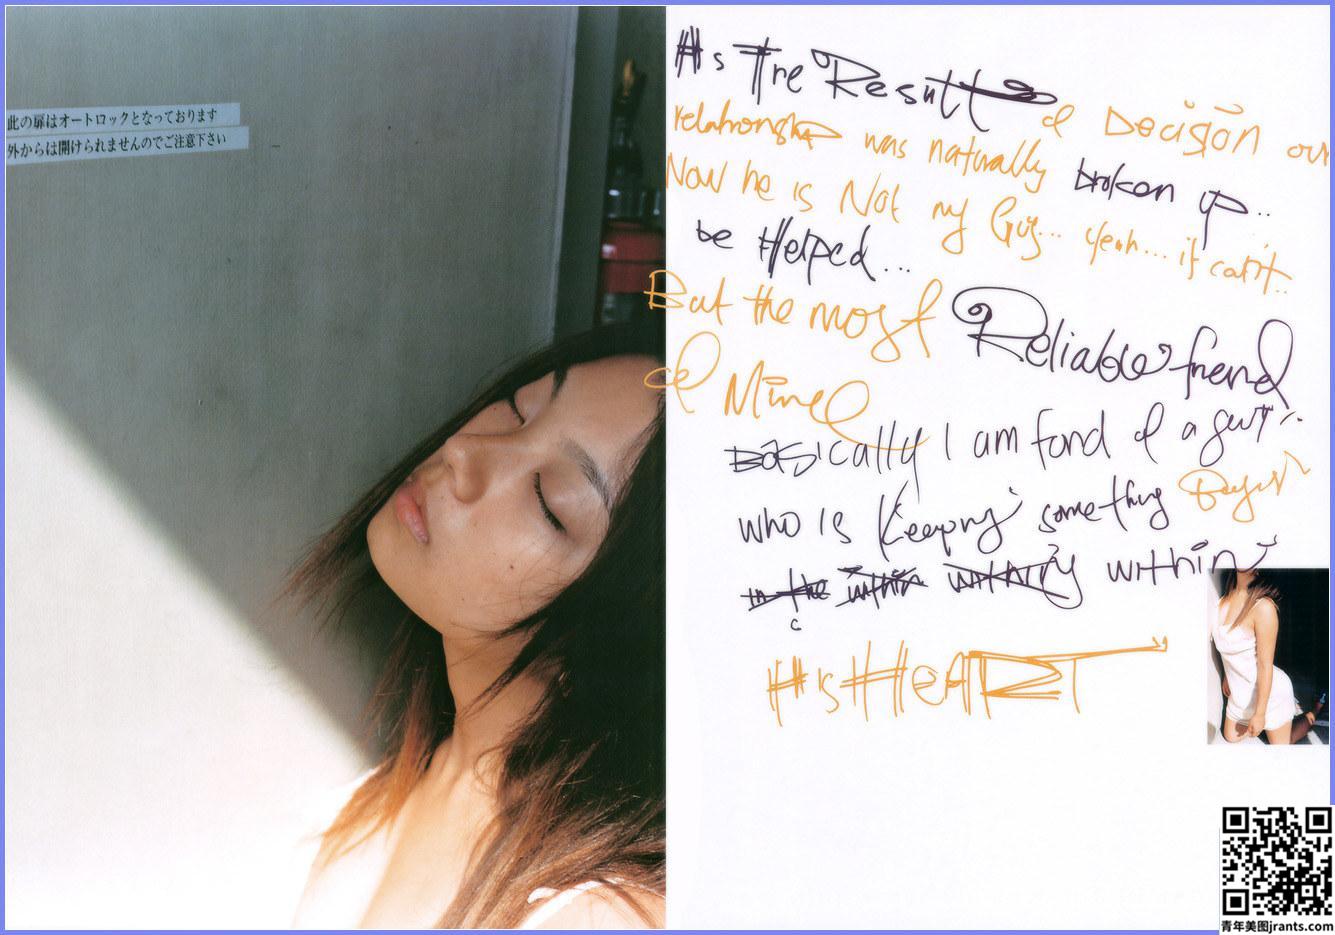 此の扉はオートロックとなっております
外からは開けられませんのでご注意下さい
As The Result of Decision our
relationship was naturally broken up..
Now he is Not my Guy... yeah... it can't..
be Helped...
But the most Reliable friend
of Mine
Basically I am fond of a guy
who is Keeping something
in the within within
His HeART
青年美图jrants.com